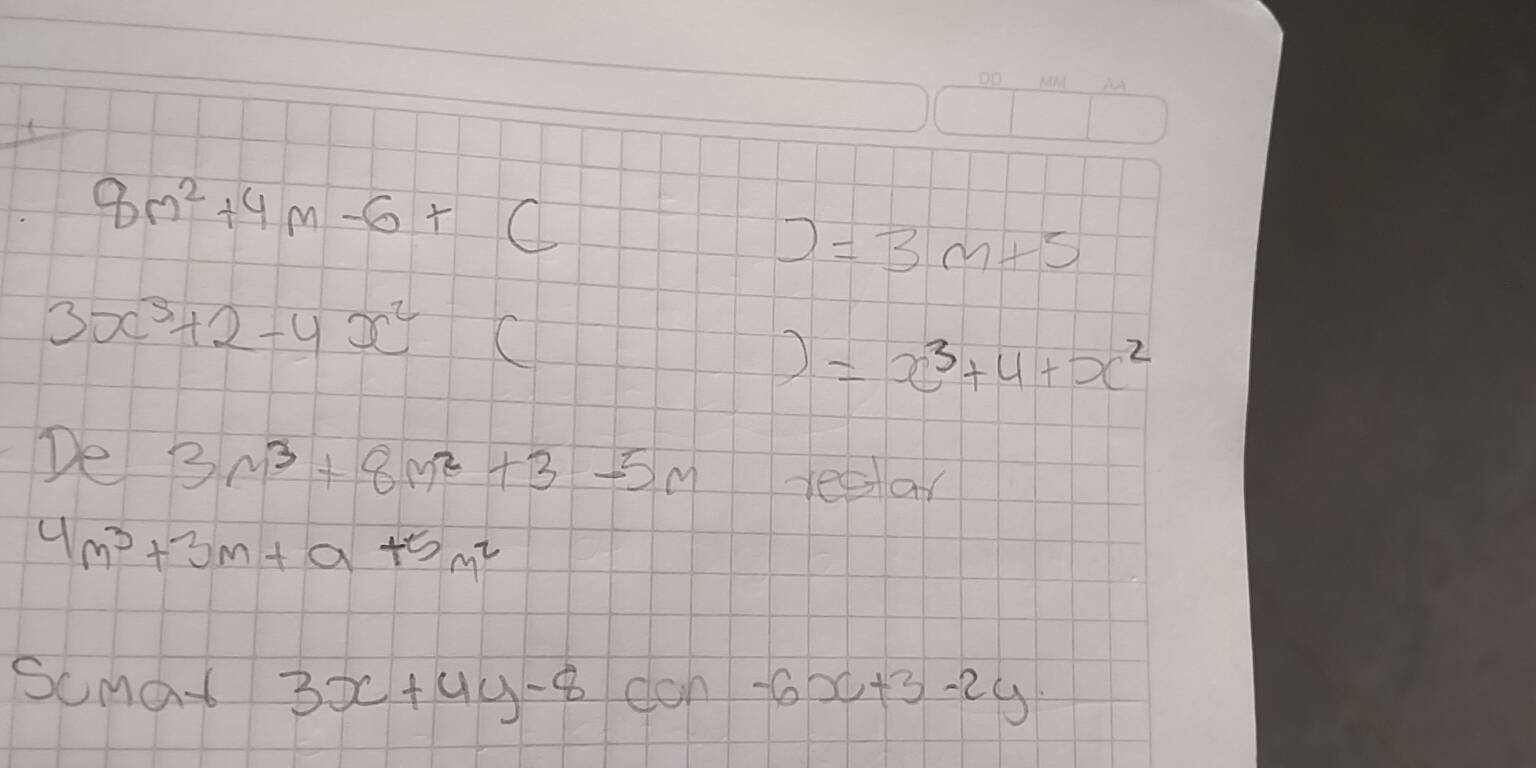 DD MM AA
8m² + 4m - 6 + ( ) = 3m + 5
3x³ + 2 - 4x² ( ) = x³ + 4 + x²
De 3m³ + 8m² + 3 - 5m restar
4m³ + 3m + a + 5m²
Sumar 3x + 4y - 8 con -6x + 3 - 2y.